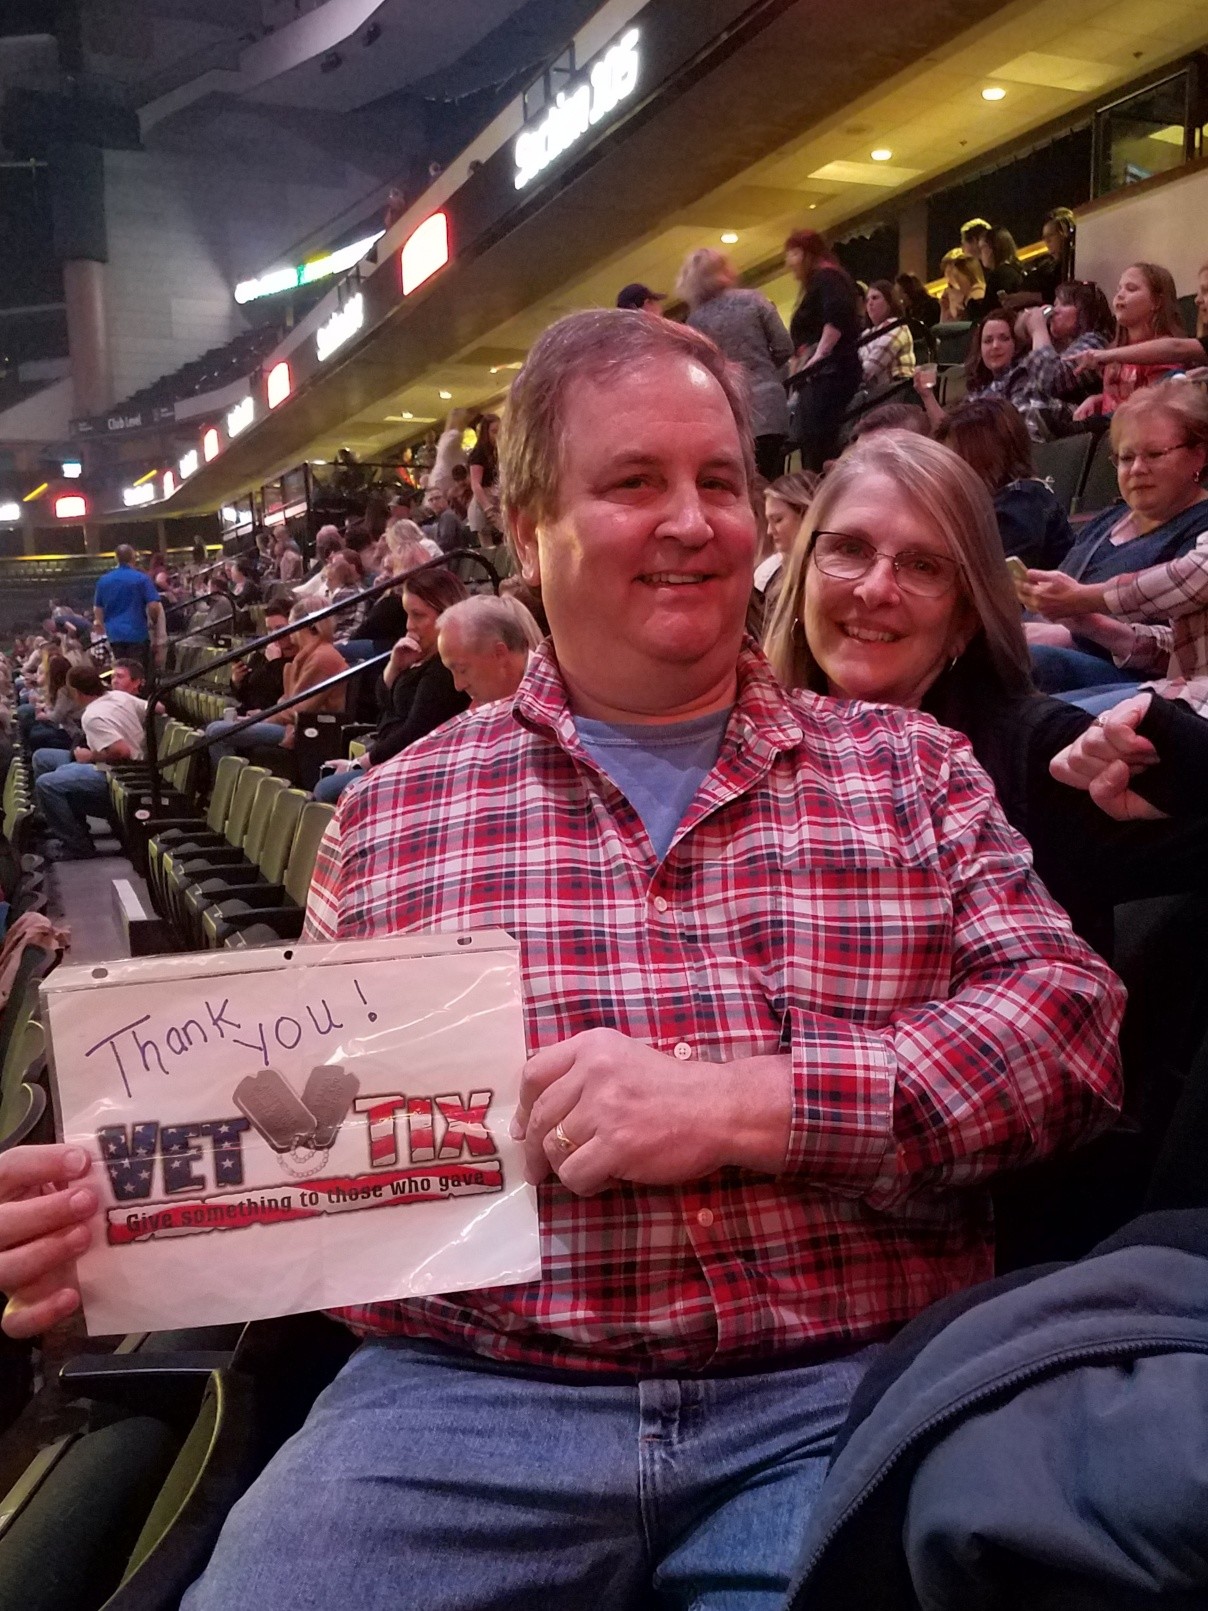 Section 105
Club Level
Thank you!
VET TIX
Give something to those who gave